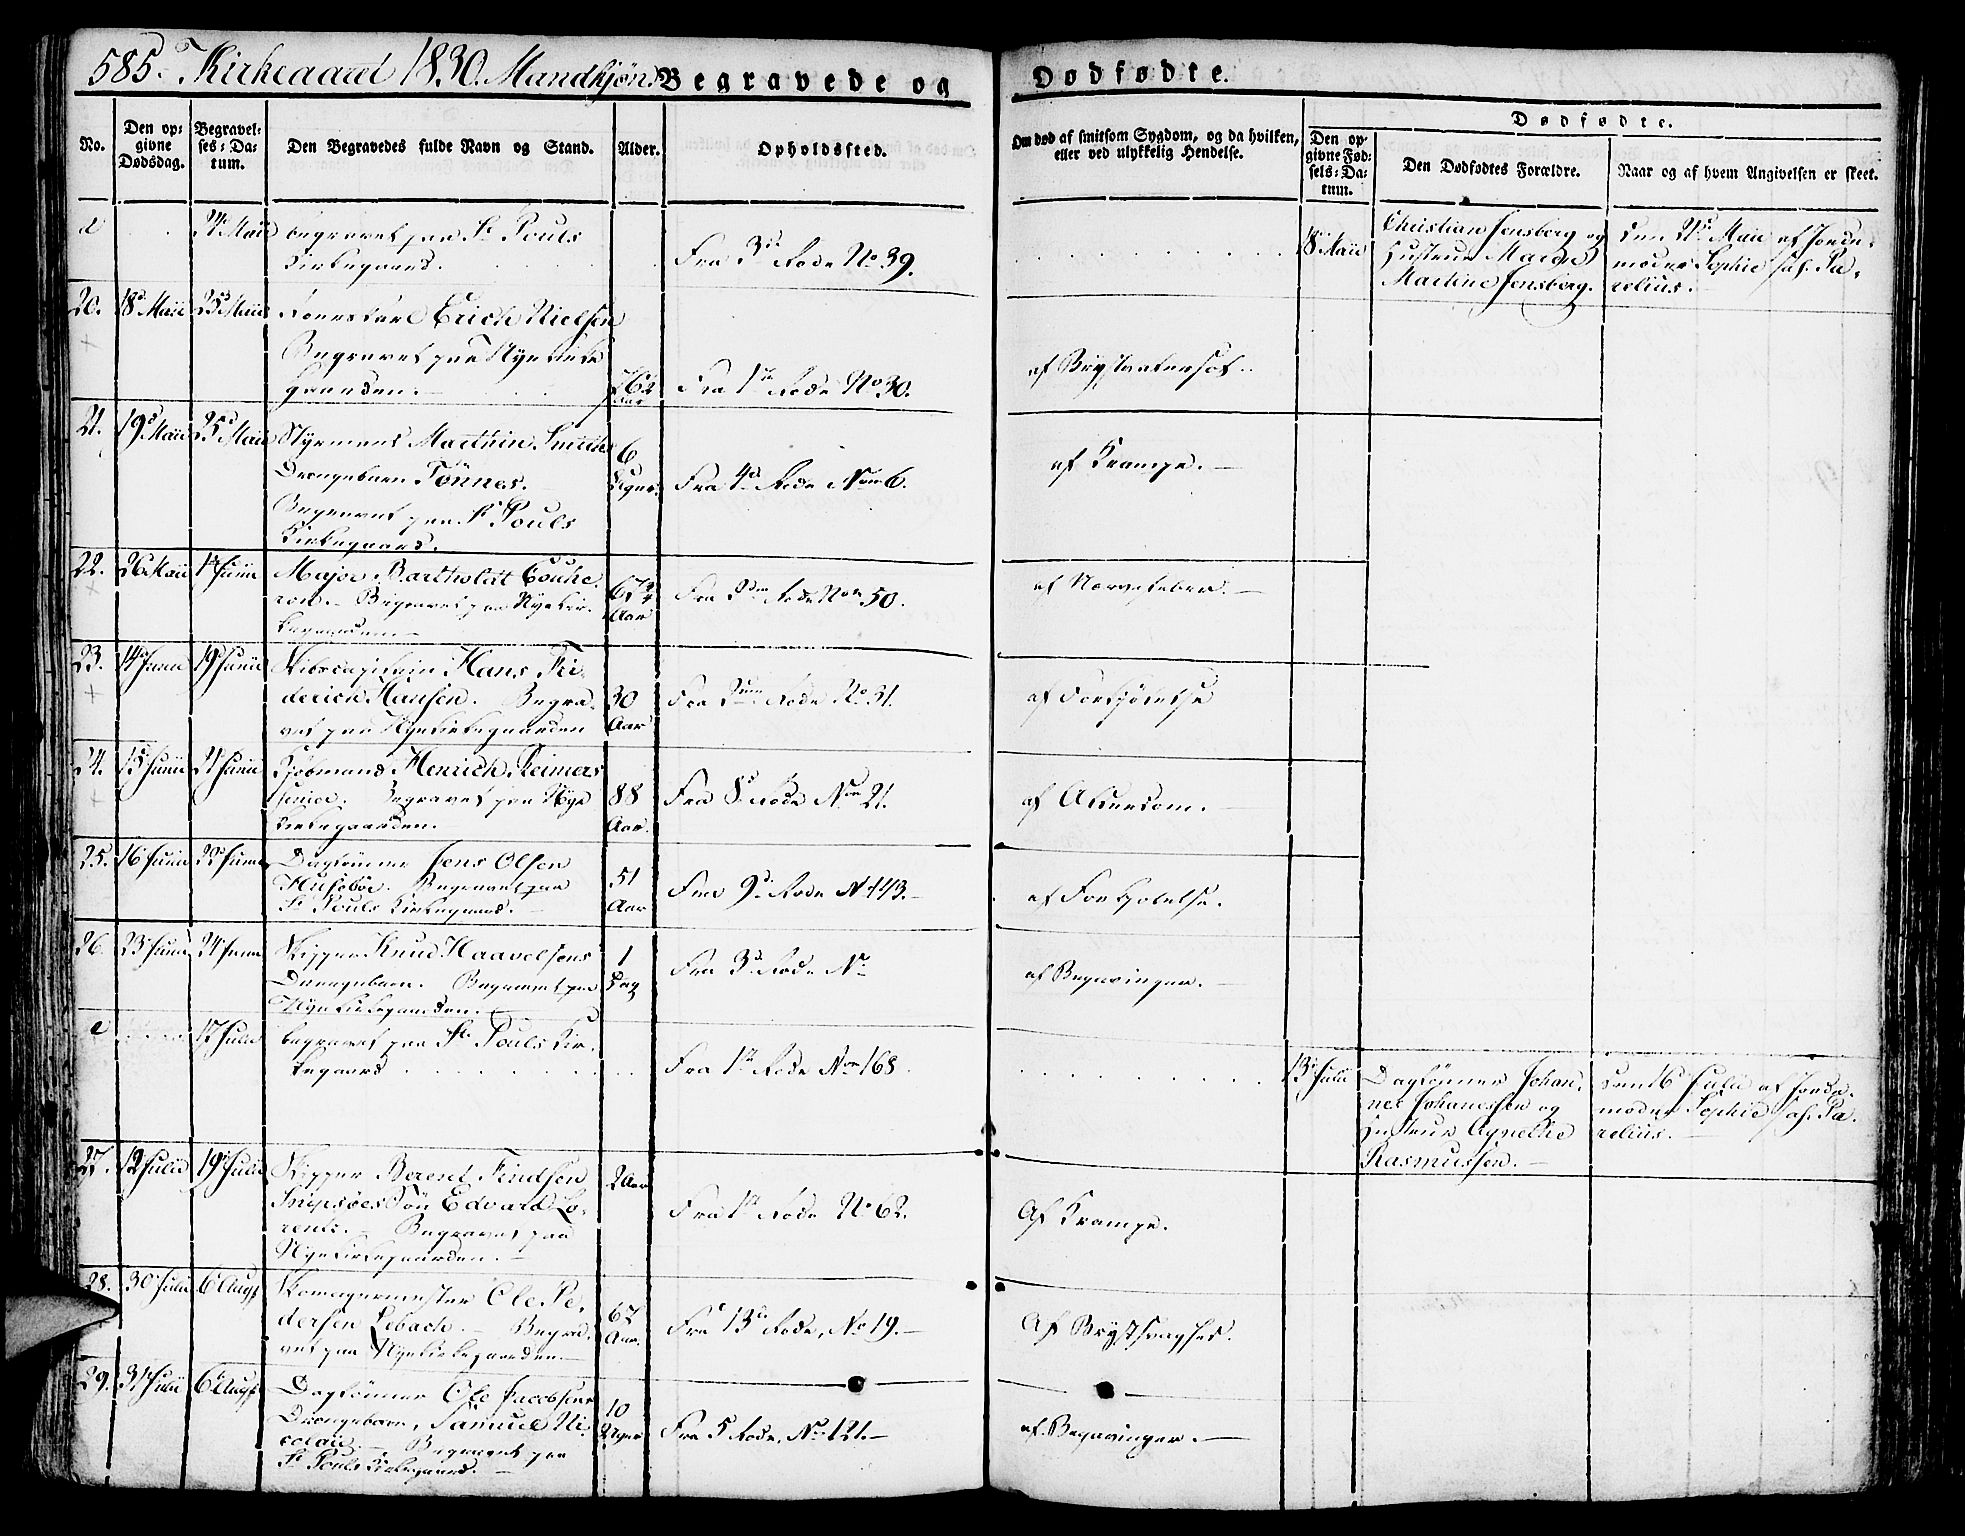 585. I Kirkeaaret 1830. Mandkjøn. Begravede og Dødfødte.
No. Den opgivne Dødsdag. Begravelses-Datum. Den Begravedes fulde Navn og Stand. Alder. Opholdssted. Om død af smitsom Sygdom, og da hvilken, eller ved ulykkelig Hendelse. Dødfødte. Den opgivne Fødsels-Datum. Den Dødfødtes Forældre. Naar og af hvem Angivelsen er skeet.
24 Maii begravet paa St. Pouls
Kirkegaard.
Fra 3de Rode No 39.
18 Maii Christian Jensberg og
Hustrue Maren
Martine Jensberg.
den 21 Maii af Jorde-
moder Sophie sal. Pa-
relius.
20. 18d Maii 25d Maii Erich Nielsen
Begravet paa Nye Kirke
gaarden.
Aar
Fra 1ste Rode No 30.
af
21. 19d Maii 25d Maii Styrmand Marthin Smiths
Drengebarn Tönnes.
Begravet paa St Pouls
Kirkegaard.
6
Uger.
Fra 4de Rode Nom 6.
af Krampe.
22. 26 Maii 1 Junii Major Bartholdt Couhe
ron. Begravet paa Nye Kir-
kegaarden
67
Aar
Fra Rode Nom 50.
af Nervefeber.
23. 14 Junii 19 Junii Skibscapitain Hans Fri-
derich Hansen. Begra-
vet paa Nye Kirkegaarden
30
Aar
Fra Rode No 31.
af Forkjølelse
24. 15 Junii 21 Junii Kjøbmand Henrich Reimers
senior. Begravet paa Nye
Kirkegaarden.
88
Aar.
Fra 8d Rode Nom 21.
af Alderdom.
25. 16 Junii 22 Junii Daglønner Jens Olsen
Husebøe. Begravet paa
St Pouls Kirkegaard.
51
Aar
Fra 9de Rode N 143.
af Forkjølelse.
26. 23 Junii 24 Junii Skipper Knud Haavelsens
Drengebarn. Begravet paa
Nye Kirkegaarden.
1
Dag
Fra 3d Rode No
af Begavinger.
17 Julii begravet paa St. Pouls Kir-
kegaard
Fra 1ste Rode Nom 168
13 Julii Daglønner Johan-
nes Johanessen og
Hustrue Agnethe
Rasmussen.
den 16 Julii af Jorde-
moder Sophie sal. Pa-
relius.
27. 12 Julii 19 Julii Skipper Berent Findsen
Søn Edvard Lo-
rentz. Begravet paa
Nye Kirkegaarden.
2 Aar
Fra 1ste Rode No 62.
Af Krampe.
28. 30 Julii 6 Augs Skomagermester Ole Pe-
dersen Lebach. Begra-
vet paa Nye Kirkegaarden
67
Aar.
Fra 13de Rode, No 19.
Af Brystsvaghed.
29. 31 Julii 6 Augs Daglønner Ole Jacobsens
Drengebarn, Samuel Ni-
colaii. Begravet paa
St Pouls Kirkegaard.
10
Uger
Fra 5 Rode, No 121.
af Begavinger.